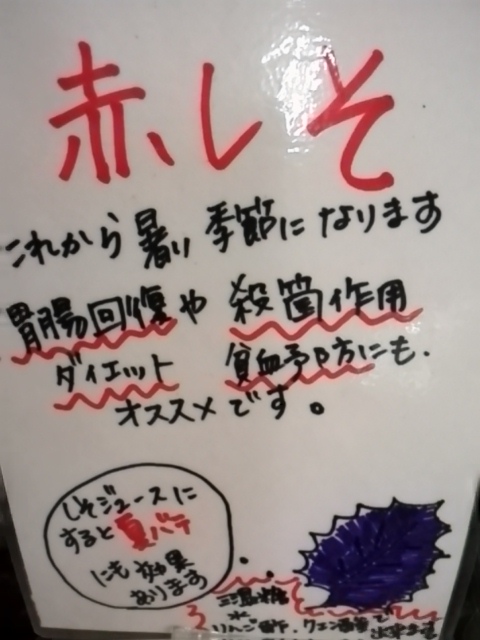 赤しそ
これから暑い季節になります
胃腸回復や殺菌作用
ダイエット 貧血予防にも.
オススメです。
しそジュースに
すると夏バテ
にも効果
あります
三温糖
水
りんご酢、クエン酸で